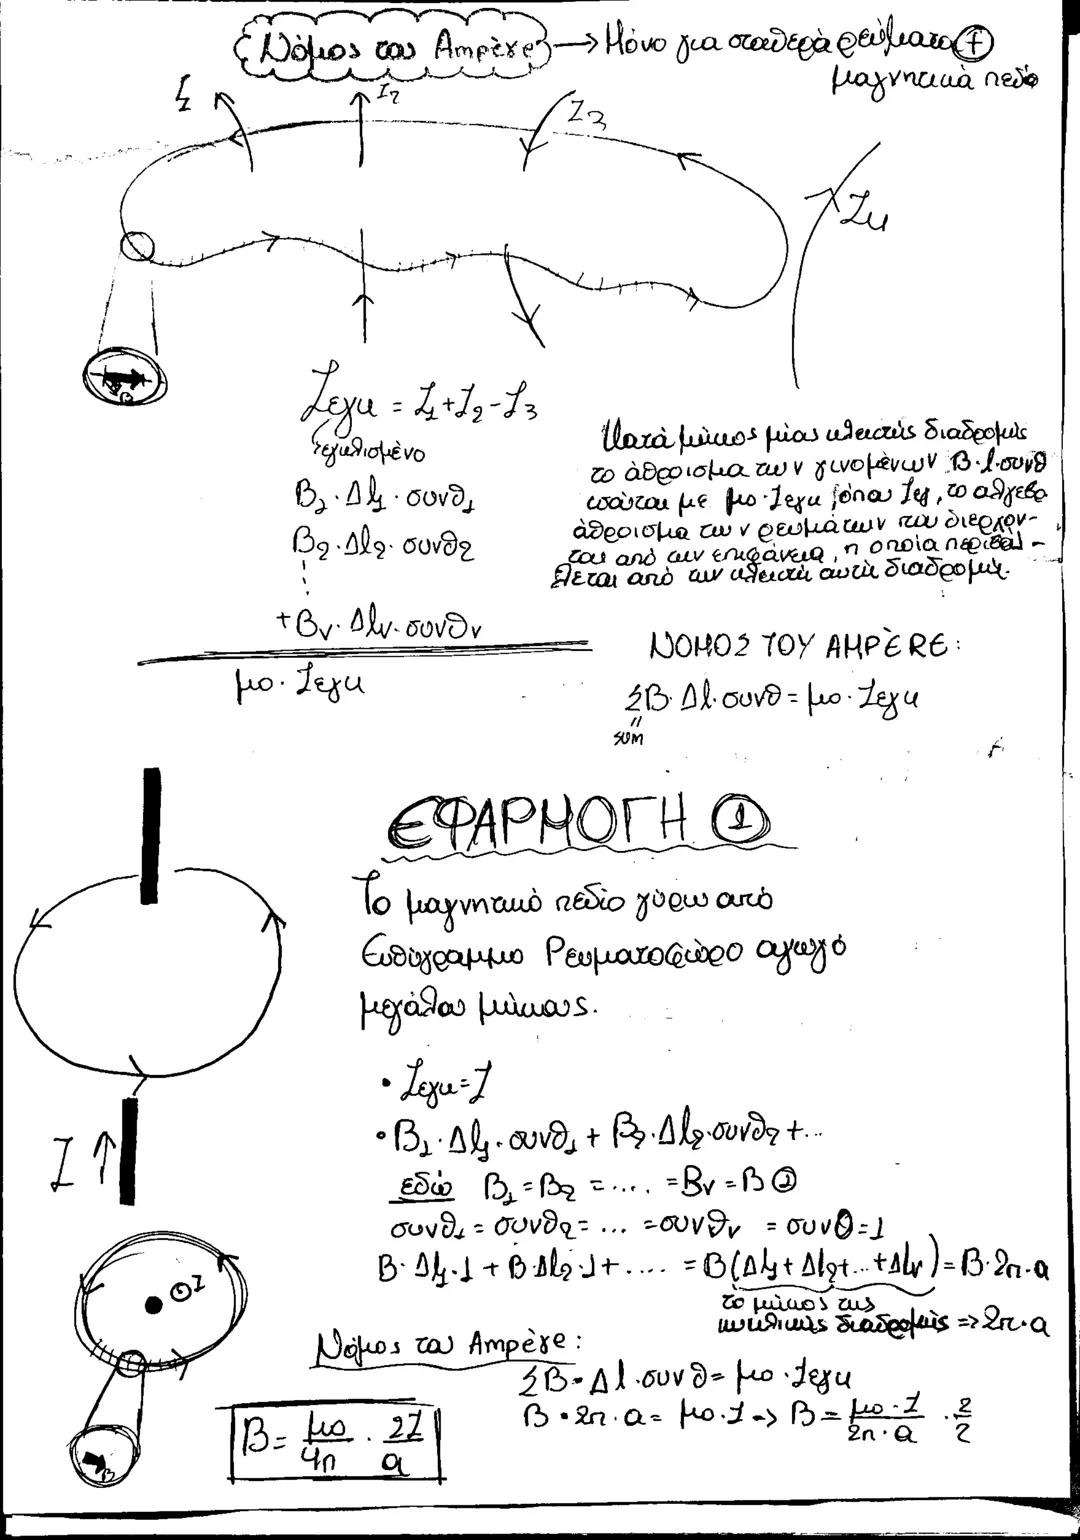 Νόμος του Ampère → Μόνο για σταθερά ρεύματα (+)
μαγνητικά πεδία
I₁ I₂ I₃
I₄
Iεγκ = I₁+I₂-I₃
εγκλισμένο
B₁·Δl₁·συνθ₁
B₂·Δl₂·συνθ₂
+Bν·Δlν·συνθν
μο·Iεγκ
Κατά μήκος μίας κλειστής διαδρομής
το άθροισμα των γινομένων B·l·συνθ
ισούται με μο·Iεγκ, όπου Iεγ, το αλγεβρ
άθροισμα των ρευμάτων που διέρχον-
ται από την επιφάνεια, η οποία περιβάλ-
λεται από την κλειστή αυτή διαδρομή.
ΝΟΜΟΣ ΤΟΥ AMPÈRE:
ΣB·Δl·συνθ = μο·Iεγκ
"
sum
ΕΦΑΡΜΟΓΗ ①
Το μαγνητικό πεδίο γύρω από
Ευθύγραμμο Ρευματοφόρο αγωγό
μεγάλου μήκους.
• Iεγκ=I
• B₁·Δl₁·συνθ₁ + B₂·Δl₂·συνθ₂ +...
εδώ B₁=B₂ =.... =Bν =B ①
συνθ₁ = συνθ₂= ... =συνθν = συνθ=1
B·Δl₁·1 + B·Δl₂·1+.... = B(Δl₁+Δl₂+...+Δlν)=B·2π·a
το μήκος της
κυκλικής διαδρομής => 2π·a
I ↑
I
Νόμος του Ampère:
ΣB·Δl·συνθ = μο·Iεγκ
B·2π·a= μο·I -> B= μο·I / 2π·a · 2/2
B= μο/4π · 2I/a
B